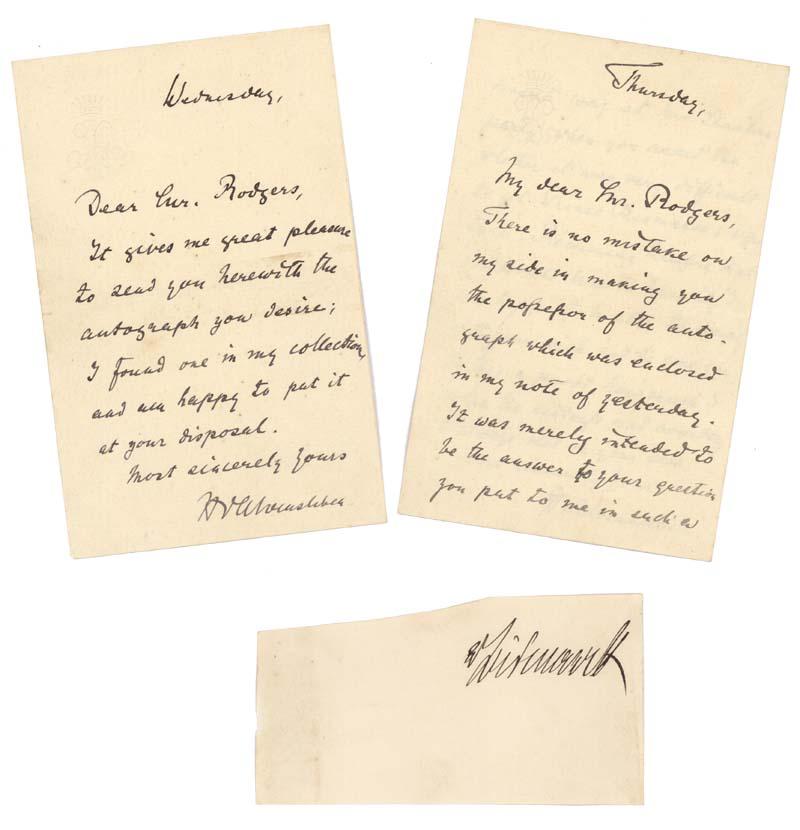 Wednesday,
Dear Mr. Rodgers,
It gives me great pleasure
to send you herewith the
autograph you desire;
I found one in my collection,
and am happy to put it
at your disposal.
Most sincerely yours
Thursday,
My dear Mr. Rodgers,
There is no mistake on
my side in making you
the possessor of the auto-
graph which was enclosed
in my note of yesterday.
It was merely intended to
be the answer to your question
you put to me in such a
v Bismarck